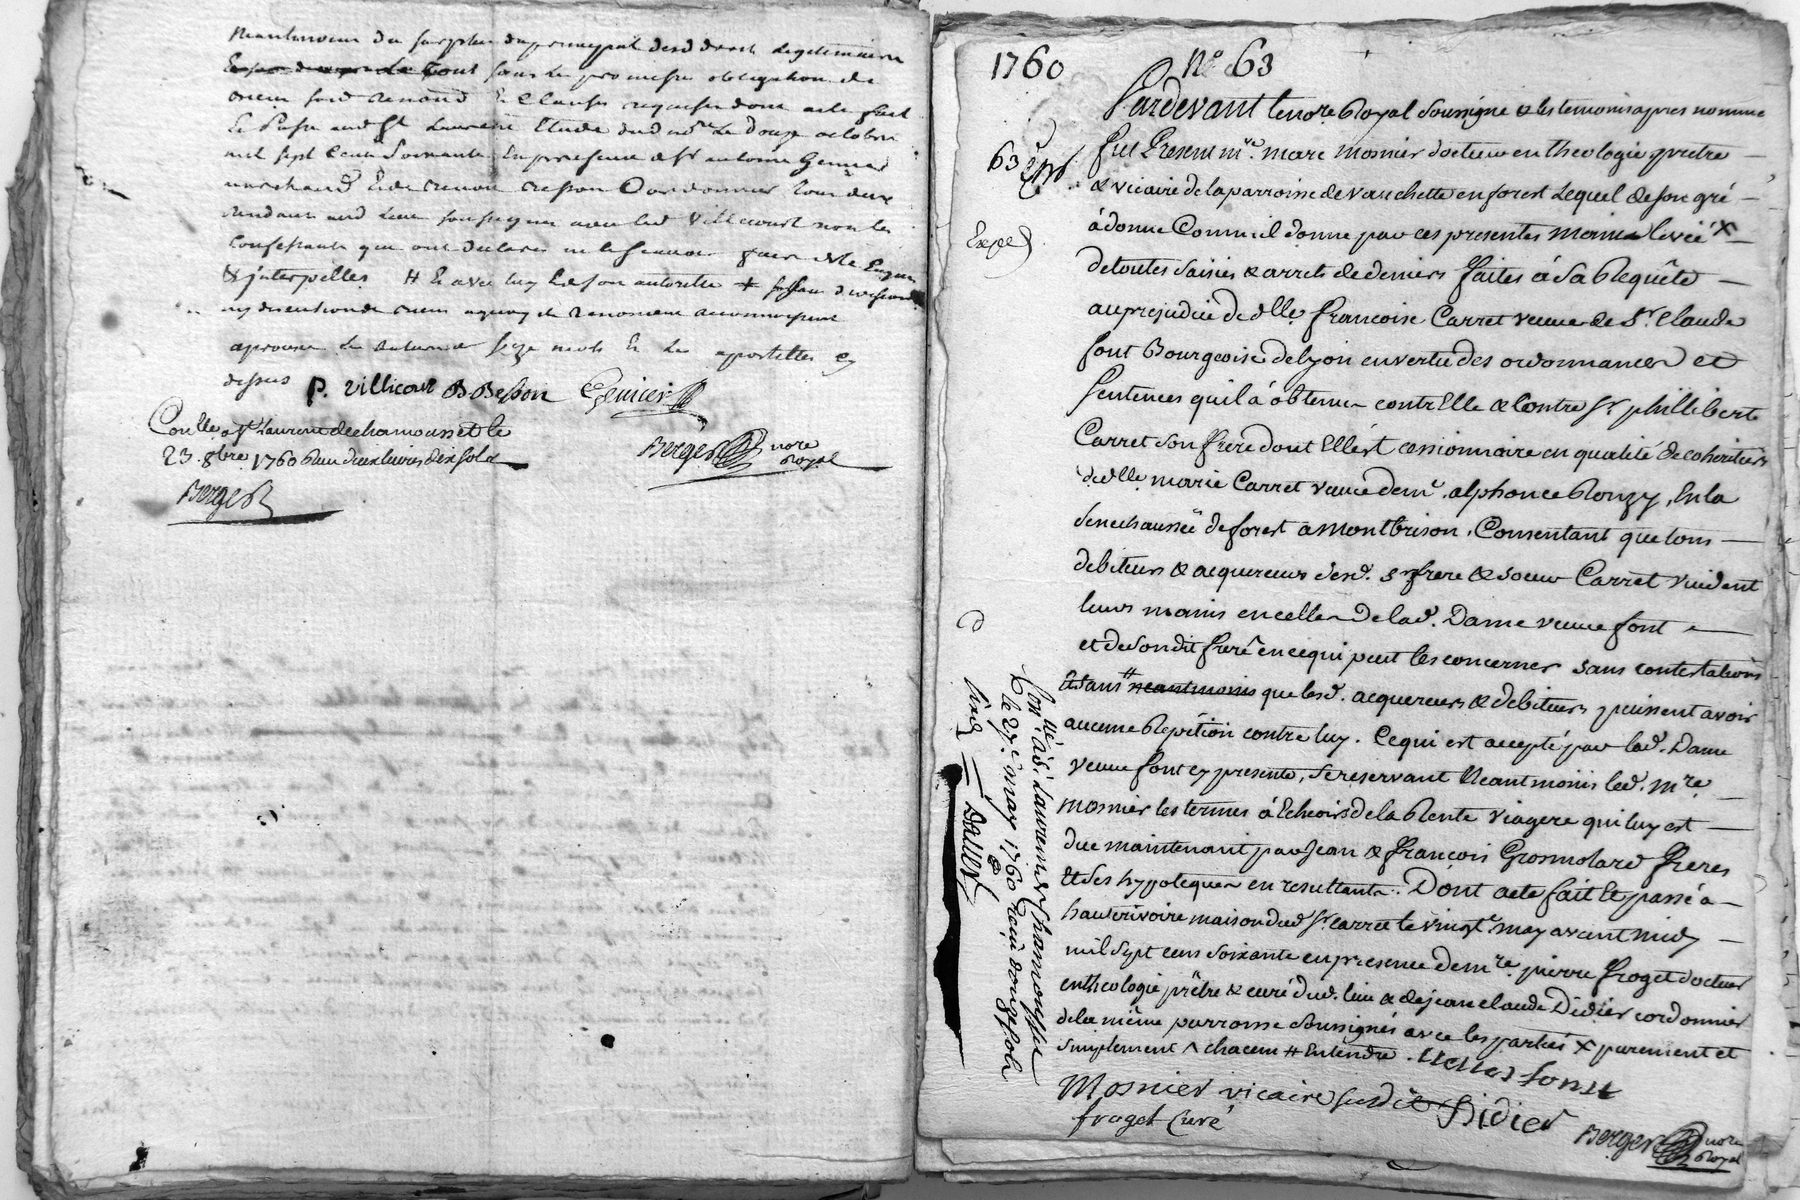 maintenues du surplus du principal desd droits legitimaires
Le tout sous les promesses obligation de
biens soub renond & clauses requises dont acte fait
& Passé aud St Laurent Etude dud no.re Le Douze octobre
mil sept Cent Soixante En presence de Sr antoine Genier
marchand Cordonnier tous deux
aud Lieu soussignes avec led Villecourt non les
Confessants qui ont declarés ne le scavoir faire de ce Enquis
& interpelles # Et avec luy de son autorité + 
aprouvé La seize mots & Les apostilles cy
dessus P. Villicour B Besson Genier
Conllé a St Laurent de chamousset le
23. 8bre. 1760 Reçu deux livres dix sols
Berger
Berger nore
Royal
1760 No. 63
63 Exp.
Expéd
Pardevant le nore Royal soussigné & les temoins apres nommé
fut Present mre. marc mosnier docteur en theologie pretre
& vicaire de la parroisse de vauchette en forest Lequel de son gré
à donné Comme il donne par ces presentes main levée x
de toutes saisies & arrets de deniers faites à sa Requête
au prejudice de dlle. francoise Carret veuve de Sr. Claude
font Bourgeoise de lyon en vertu des ordonnances et
sentences quil à obtenu contre Elle & Contre Sr. phillibert
Carret son frere dont Elle est cessionnaire en qualité de coheritiers
de dlle. marie Carret veuve de mr. alphonce Ronzy, En la
senechaussée de forest a Montbrison, Consentant que tous
debiteurs & acquereurs desd. Sr frere & soeur Carret vuident
leurs mains en celles de lad. Dame veuve font
et de son dit frere en ce qui peut les concerner sans contestations
Et sans # neantmoins que lesd. acquereurs & debiteurs puissent avoir
aucune Repetition contre luy. Ce qui est accepté par lad. Dame
veuve font cy presente, se reservant Neantmoins led. mre
mosnier les termes à Echeoir de la Rente viagere qui luy est
due maintenant par Jean & francois Grosmolard freres
et les hypoteques en resultants. Dont acte fait Et passé a
hauterivoire maison dud Sr. carret le vingt may avant midy
mil sept cens soixante en presence de mre. pierre froget docteur
en theologie prêtre & curé dud. lieu & de jean claude Didier cordonnier
de la même parroisse soussignés avec les parties x purement et
simplement ^ chacun # Entendre. Carret font
Mosnier vicaire susdit Didier
froget Curé
Berger nore
Royal
Conllé. à St. Laurent de Chamousset
le 27e. may 1760 reçu douze sols
six d Dallet